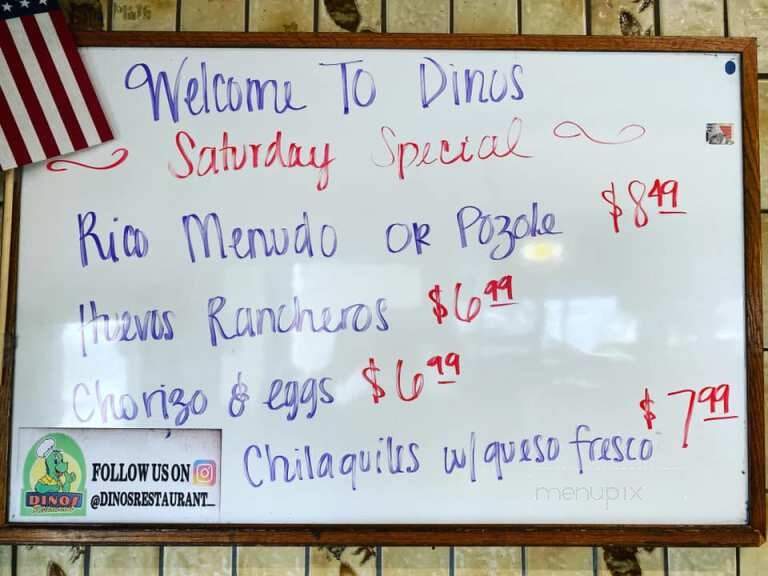 Welcome To Dinos
Saturday Special
Rico Menudo OR Pozole $8.49
Huevos Rancheros $6.99
Chorizo & eggs $6.99
Chilaquiles w/queso fresco $7.99
DINOS
FOLLOW US ON
@DINOSRESTAURANT_
menupix